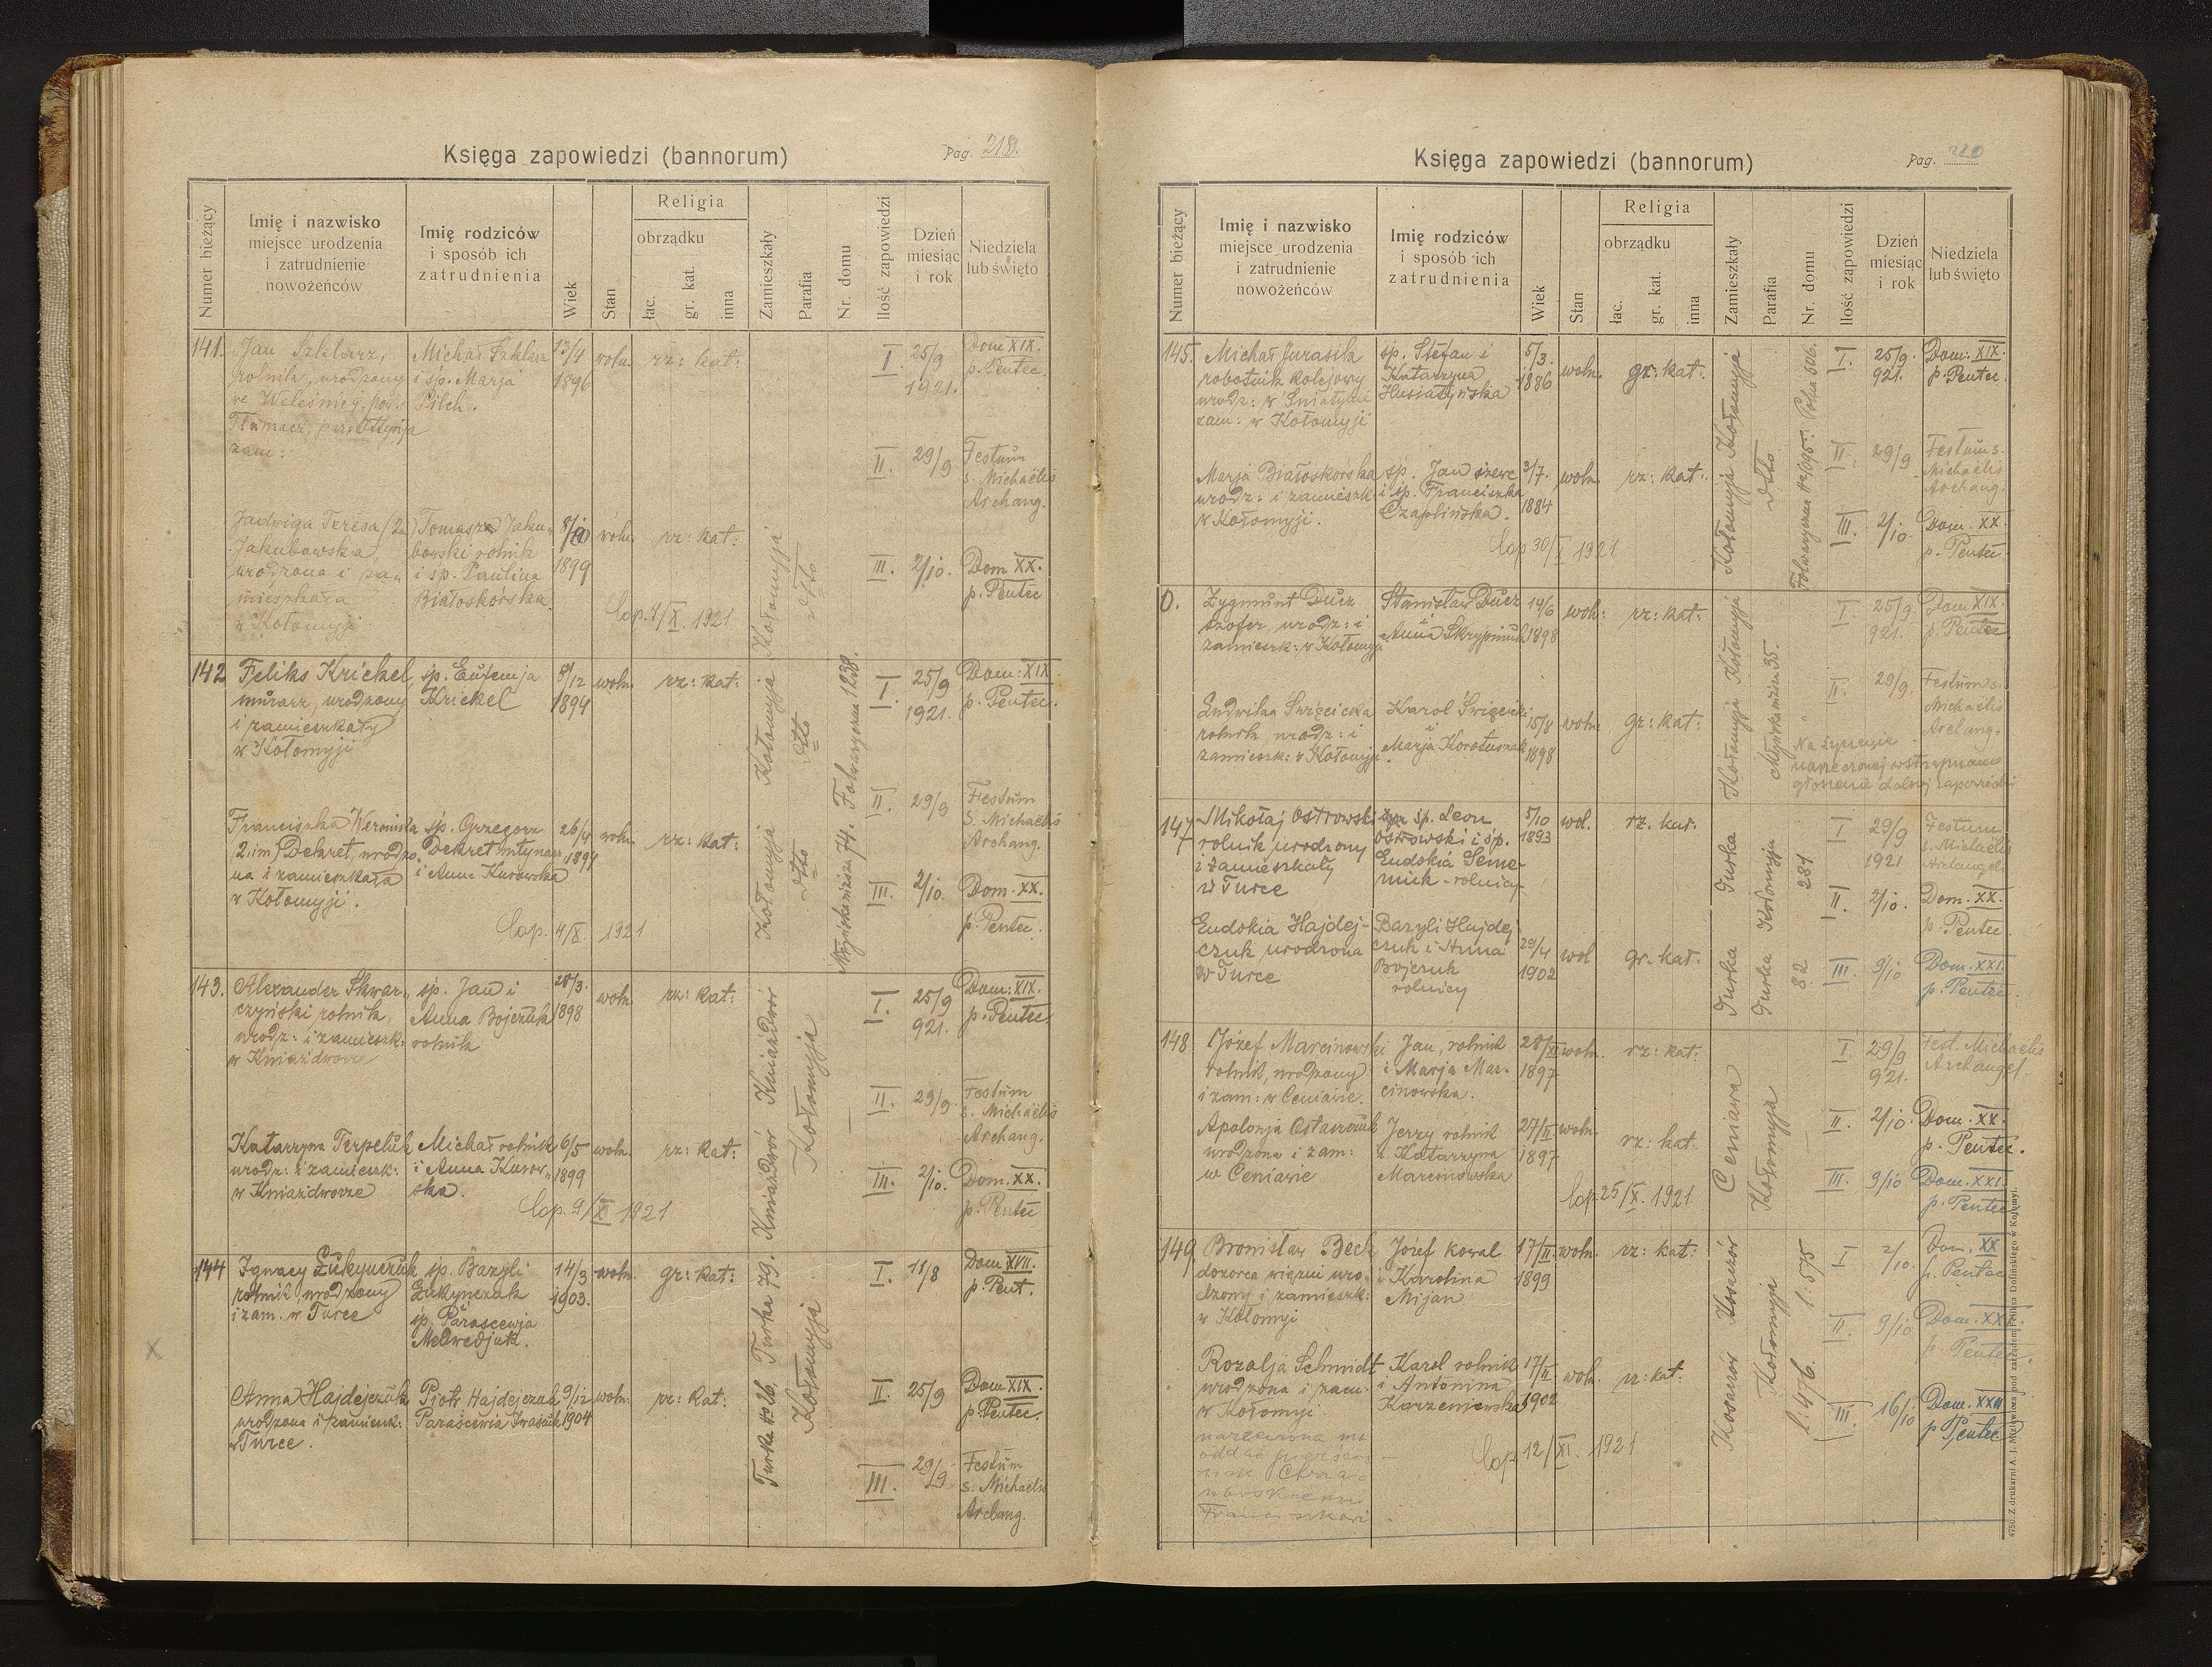 Księga zapowiedzi (bannorum)
Pag. 219.
Numer bieżący
Imię i nazwisko
miejsce urodzenia
i zatrudnienie
nowożeńców
Imię rodziców
i sposób ich
zatrudnienia
Wiek
Stan
Religia
obrządku
łac.
gr. kat.
inna
Zamieszkały
Parafia
Nr. domu
Ilość zapowiedzi
Dzień
miesiąc
i rok
Niedziela
lub święto
141. Jan Szklarz, Michał Szklarz 13/4 woln. rz: kat: I. 25/9 Dom XIX.
rolnik, urodzony i śp. Marja 1896 1921. p. Pentec.
we Weleśnicy, pow. Pilch.
Tłumacz, par. Ottynja
zam:
II. 29/9 Festum
s. Michaëlis
Archang.
Jadwiga Teresa (2 Tomasz Jaku- woln. rz: kat:
Jakubowska, bowski rolnik 1899
urodzona i za- i śp. Paulina
mieszkała Białoskórska.
w Kołomyji
III. 2/10. Dom XX.
p. Pentec
Cop. 4/X. 1921
Kołomyja
dtto
142 Feliks Krickel, śp. Eufemja 8/12 woln. rz: kat: I. 25/9 Dom: XIX
murarz, urodzony Krickel 1894 1921. p. Pentec.
i zamieszkały
w Kołomyji
Kołomyja
dtto
Folwarczna 1238.
II. 29/9 Festum
S. Michaëlis
Archang.
Franciszka Weronika śp. Grzegorz 26/4 woln. rz: kat:
2. im) Dekret, urodzo- Dekret młynarz
na i zamieszkała i Anna Kurowska
w Kołomyji.
Kołomyja
dtto
74.
III. 2/10. Dom. XX.
p. Pentec.
Cop. 4/X 1921
143. Alexander Skwar- śp. Jan i 28/3. woln. rz: kat: I. 25/9 Dom: XIX.
czyński rolnik, Anna Bojczuk 1898 921. p. Pentec.
urodz: i zamieszk: rolnik
w Kniaźdworze
Kniaźdwór
Kołomyja
II. 29/9. Festum
s. Michaëlis
Archang.
Katarzyna Terpeluk Michał rolnik 6/5 woln. rz: kat:
urodz: i zamieszk: i Anna Kurow- 1899
w Kniaźdworze ska.
Kniaźdwór
III. 2/10. Dom. XX.
p. Pentec
Cop. 9/XI 1921
144 Ignacy Łukyńczuk śp. Bazyli 14/3 woln. gr: kat: I. 11/8 Dom XVII.
rolnik urodzony Łukynczuk 1903. p. Pent.
i zam. w Turce śp. Parascewja
Medwedjuk.
Turka 79.
Kołomyja
Anna Hajdejczuk Piotr Hajdejczuk 9/12 woln. rz: kat: II. 25/9 Dom XIX.
urodzona i zamieszk: Parascewia Iwasiuk 1904 p. Pentec.
w Turce.
Turka № 36.
III. 29/9 Festum
s. Michaëlis
Archang.
X
Księga zapowiedzi (bannorum)
Pag. 220
Numer bieżący
Imię i nazwisko
miejsce urodzenia
i zatrudnienie
nowożeńców
Imię rodziców
i sposób ich
zatrudnienia
Wiek
Stan
Religia
obrządku
łac.
gr. kat.
inna
Zamieszkały
Parafia
Nr. domu
Ilość zapowiedzi
Dzień
miesiąc
i rok
Niedziela
lub święto
145. Michał Jurasik śp. Stefan i 5/3. woln. gr: kat: I. 25/9. Dom: XIX.
robotnik kolejowy Katarzyna 1886 921. p. Pentec.
urodz: w Śniatynie Husiatyńska
zam: w Kołomyji
Kołomyja
dtto
II. 29/9 Festum s.
Michaëlis
Archang.
Marja Białoskórska śp. Jan szewc 3/7. woln. rz: kat:
urodz: i zamieszk: i śp. Franciszka 1884
w Kołomyji. Czaplińska.
Kołomyja
III. 2/10. Dom. XX.
p. Pentec.
1921
0. Zygmunt Ducz Stanisław Ducz 14/6 woln: rz: kat: I. 25/9. Dom XIX.
szofer, urodz: i Anna Skrypniuk 1898 921. p. Pentec.
zamieszk: w Kołomyji
Kołomyja
35.
II. 29/9. Festum s.
Michaëlis
Archang.
Ludwika Święcicka Karol Święcicki 15/8 woln. gr: kat:
rolnik urodz: i i 1898
zamieszk: w Kołomyji. Marja
Kołomyja
Na życzenie
narzeczonej wstrzymano
głoszenie dalszej zapowiedzi
147 Mikołaj Ostrowski śp. Leon 5/10 wol. rz. kat. I 29/9 Festum
rolnik urodzony Ostrowski i śp. 1893 1921 s. Michaelis
i zamieszkały Eudokia Seme- Archangel.
w Turce niuk - rolnicy
Turka
Kołomyja
281
II. 2/10. Dom. XX.
p. Pentec.
Eudokia Hajdej- Bazyli Hajdej 29/4 wol gr. kat.
czuk urodzona czuk i Anna 1902
w Turce Bojczuk
rolnicy
Turka
Turka
82
III. 9/10 Dom. XXI.
p. Pentec.
148 Józef Marcinowski Jan, rolnik 28/XI woln. rz: kat: I. 29/9 Fest. Michaelis
rolnik, urodzony i Marja Mar- 1897 921. Archangel.
i zam: w Ceniawie. cinowska.
Ceniawa
Kołomyja
II. 2/10. Dom. XX.
p. Pentec.
Apolonja Ostaszczuk Jerzy rolnik 27/II woln. rz: kat.
urodzona i zam: i Katarzyna 1897
w Ceniawie Marcinowska
III. 9/10 Dom. XXI.
p. Pentec.
Cop. 25/X. 1921
149. Bronisław Beck Józef kowal 17/II. woln. rz: kat: I 2/10. Dom. XX
dozorca więzni uro- i Karolina 1899 p. Pentec
dzony i zamieszk: Mijan
w Kołomyi
Kosaczów
Kołomyja
l: 575
II. 9/10 Dom. XXI.
p. Pentec.
Rozalja Schmidt Karol rolnik 17/II woln. rz: kat:
urodzona i zam: i Antonina 1902
w Kołomyji. Korzeniewska
Kosaczów
l: 476.
III. 16/10 Dom. XXII
p. Pentec.
narzeczona ma
oddać pierścio-
nek
Cop 12/XI. 1921
4750. Z drukarni A. J. Miziewicza pod zarządem Feliksa Dolińskiego w Kołomyi.